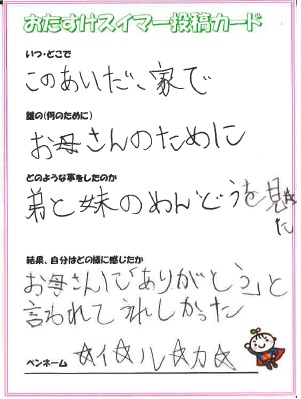 おたすけスイマー投稿カード
いつ・どこで
このあいだ、家で
誰の(何のために)
お母さんのために
どのような事をしたのか
弟と妹のめんどうを見
た
結果、自分はどの様に感じたか
お母さんに「ありがとう」と
言われてうれしかった
ペンネーム ☆イ☆ル☆カ☆